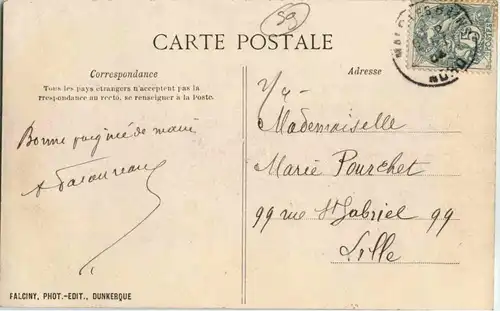 59
CARTE POSTALE
MALO-LES-BAINS
NORD
Correspondance
Tous les pays étrangers n'acceptent pas la
rrespondance au recto, se renseigner à la Poste.
Adresse
Bonne poignée de main
Mademoiselle
Marie Pourchet
99 rue St Gabriel 99
Lille
FALCINY, PHOT.-EDIT., DUNKERQUE